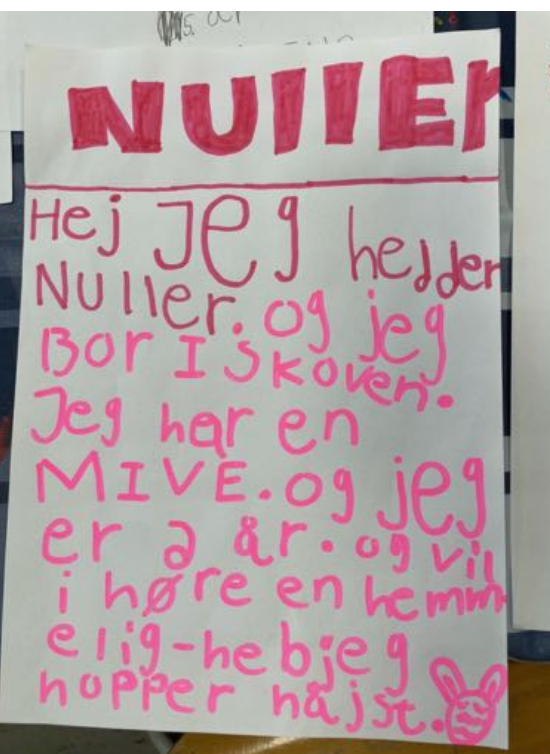 NUllEr
Hej jeg hedder
Nuller. og jeg
Bor I skoven.
Jeg har en
MIVE. og jeg
er 2 år. og vil
i høre en hemm
elig-hebjeg
hopper højst.